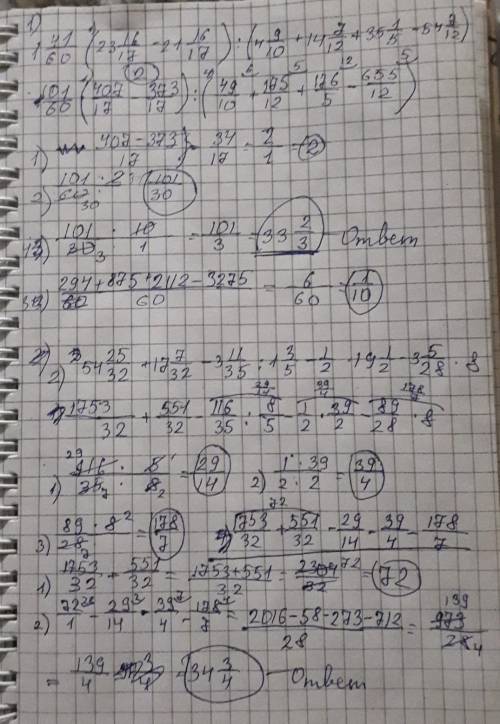 1)
1 41/60 · (23 16/17 - 21 16/17) : (4 9/10 + 14 7/12 + 35 1/5 - 54 7/12)
101/60 (407/17 - 373/17) : (49/10 + 175/12 + 176/5 - 655/12)
1) 407-373/17 = 34/17 = 2/1 = 2
2) 101 · 2/60 30 = 101/30
101/30 3 · 10/1 = 101/3 = 33 2/3 Ответ
294+875+2112-3275/60 = 6/60 = 1/10
2) 54 25/32 + 17 7/32 - 3 11/35 : 1 3/5 - 1/2 · 19 1/2 - 3 5/28 · 8
1753/32 + 551/32 - 116/35 · 8/5 - 1/2 · 39/2 - 89/28 · 8
1) 116 · 5/35 7 · 8 2 = 29/14 2) 1 · 39/2 · 2 = 39/4
3) 89 · 8 2/28 7 = 178/7 1753/32 + 551/32 - 29/14 - 39/4 - 178/7
1) 1753/32 + 551/32 = 1753+551/32 = 2304/32 72 = 72
2) 72/1 - 29/14 - 39/4 - 178/7 = 2016-58-273-712/28 = 973/28 4 139
= 139/4 = 34 3/4 - Ответ